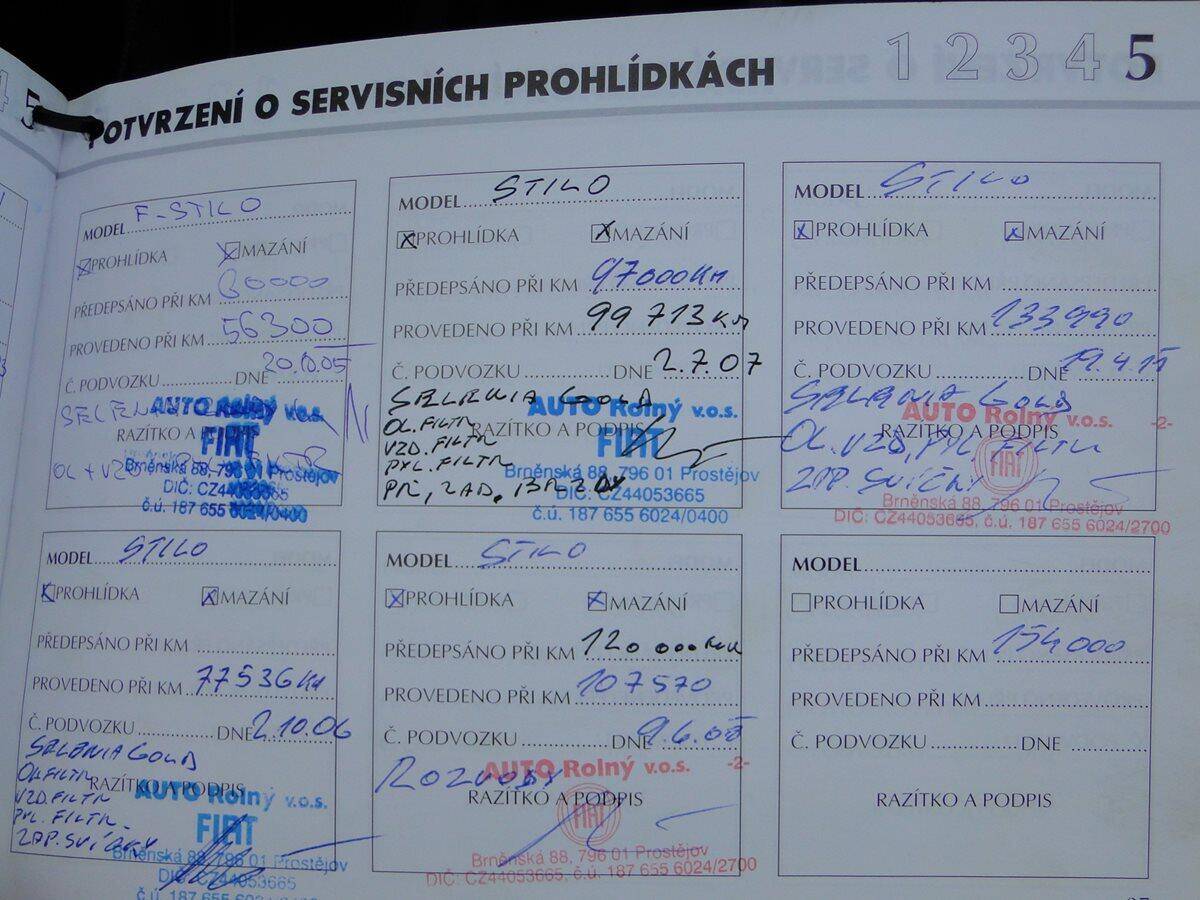 1 2 3 4 5
POTVRZENÍ O SERVISNÍCH PROHLÍDKÁCH
MODEL F-STILO
PROHLÍDKA MAZÁNÍ
PŘEDEPSÁNO PŘI KM
PROVEDENO PŘI KM 56300
Č. PODVOZKU DNE
RAZÍTKO A
AUTO Rolný v.o.s.
FIAT
Brněnská 88, 796 01 Prostějov
DIČ: CZ44053665
č.ú. 187 655 6024/0400
MODEL STILO
X PROHLÍDKA X MAZÁNÍ
PŘEDEPSÁNO PŘI KM 97000KM
PROVEDENO PŘI KM 99 713 KM
Č. PODVOZKU DNE 2.7.07
SELENIA GOLD
OL. FILTR
RAZÍTKO A PODPIS
VZD. FILTR
PYL. FILTR
AUTO Rolný v.o.s.
FIAT
Brněnská 88, 796 01 Prostějov
DIČ: CZ44053665
č.ú. 187 655 6024/0400
MODEL STILO
X PROHLÍDKA X MAZÁNÍ
PŘEDEPSÁNO PŘI KM
PROVEDENO PŘI KM 133990
Č. PODVOZKU DNE 19.4.11
SELENIA GOLD
RAZÍTKO A PODPIS
OL. VZD, PYL, FILTR
ZAP. SVÍČKY
AUTO Rolný v.o.s. -2-
FIAT
Brněnská 88, 796 01 Prostějov
DIČ: CZ44053665, č.ú. 187 655 6024/2700
MODEL STILO
X PROHLÍDKA X MAZÁNÍ
PŘEDEPSÁNO PŘI KM
PROVEDENO PŘI KM 77536KM
Č. PODVOZKU DNE 2.10.06
SELENIA GOLD
OL. FILTR
RAZÍTKO A PODPIS
VZD. FILTR
PYL. FILTR
ZAP. SVÍČKY
AUTO Rolný v.o.s.
FIAT
Brněnská 88, 796 01 Prostějov
DIČ: CZ44053665
č.ú. 187 655 6024/0400
MODEL STILO
X PROHLÍDKA X MAZÁNÍ
PŘEDEPSÁNO PŘI KM 120 000 KM
PROVEDENO PŘI KM 107570
Č. PODVOZKU DNE 9.6.08
ROZVODY
RAZÍTKO A PODPIS
AUTO Rolný v.o.s. -2-
FIAT
Brněnská 88, 796 01 Prostějov
DIČ: CZ44053665, č.ú. 187 655 6024/2700
MODEL
PROHLÍDKA MAZÁNÍ
PŘEDEPSÁNO PŘI KM 154000
PROVEDENO PŘI KM
Č. PODVOZKU DNE
RAZÍTKO A PODPIS